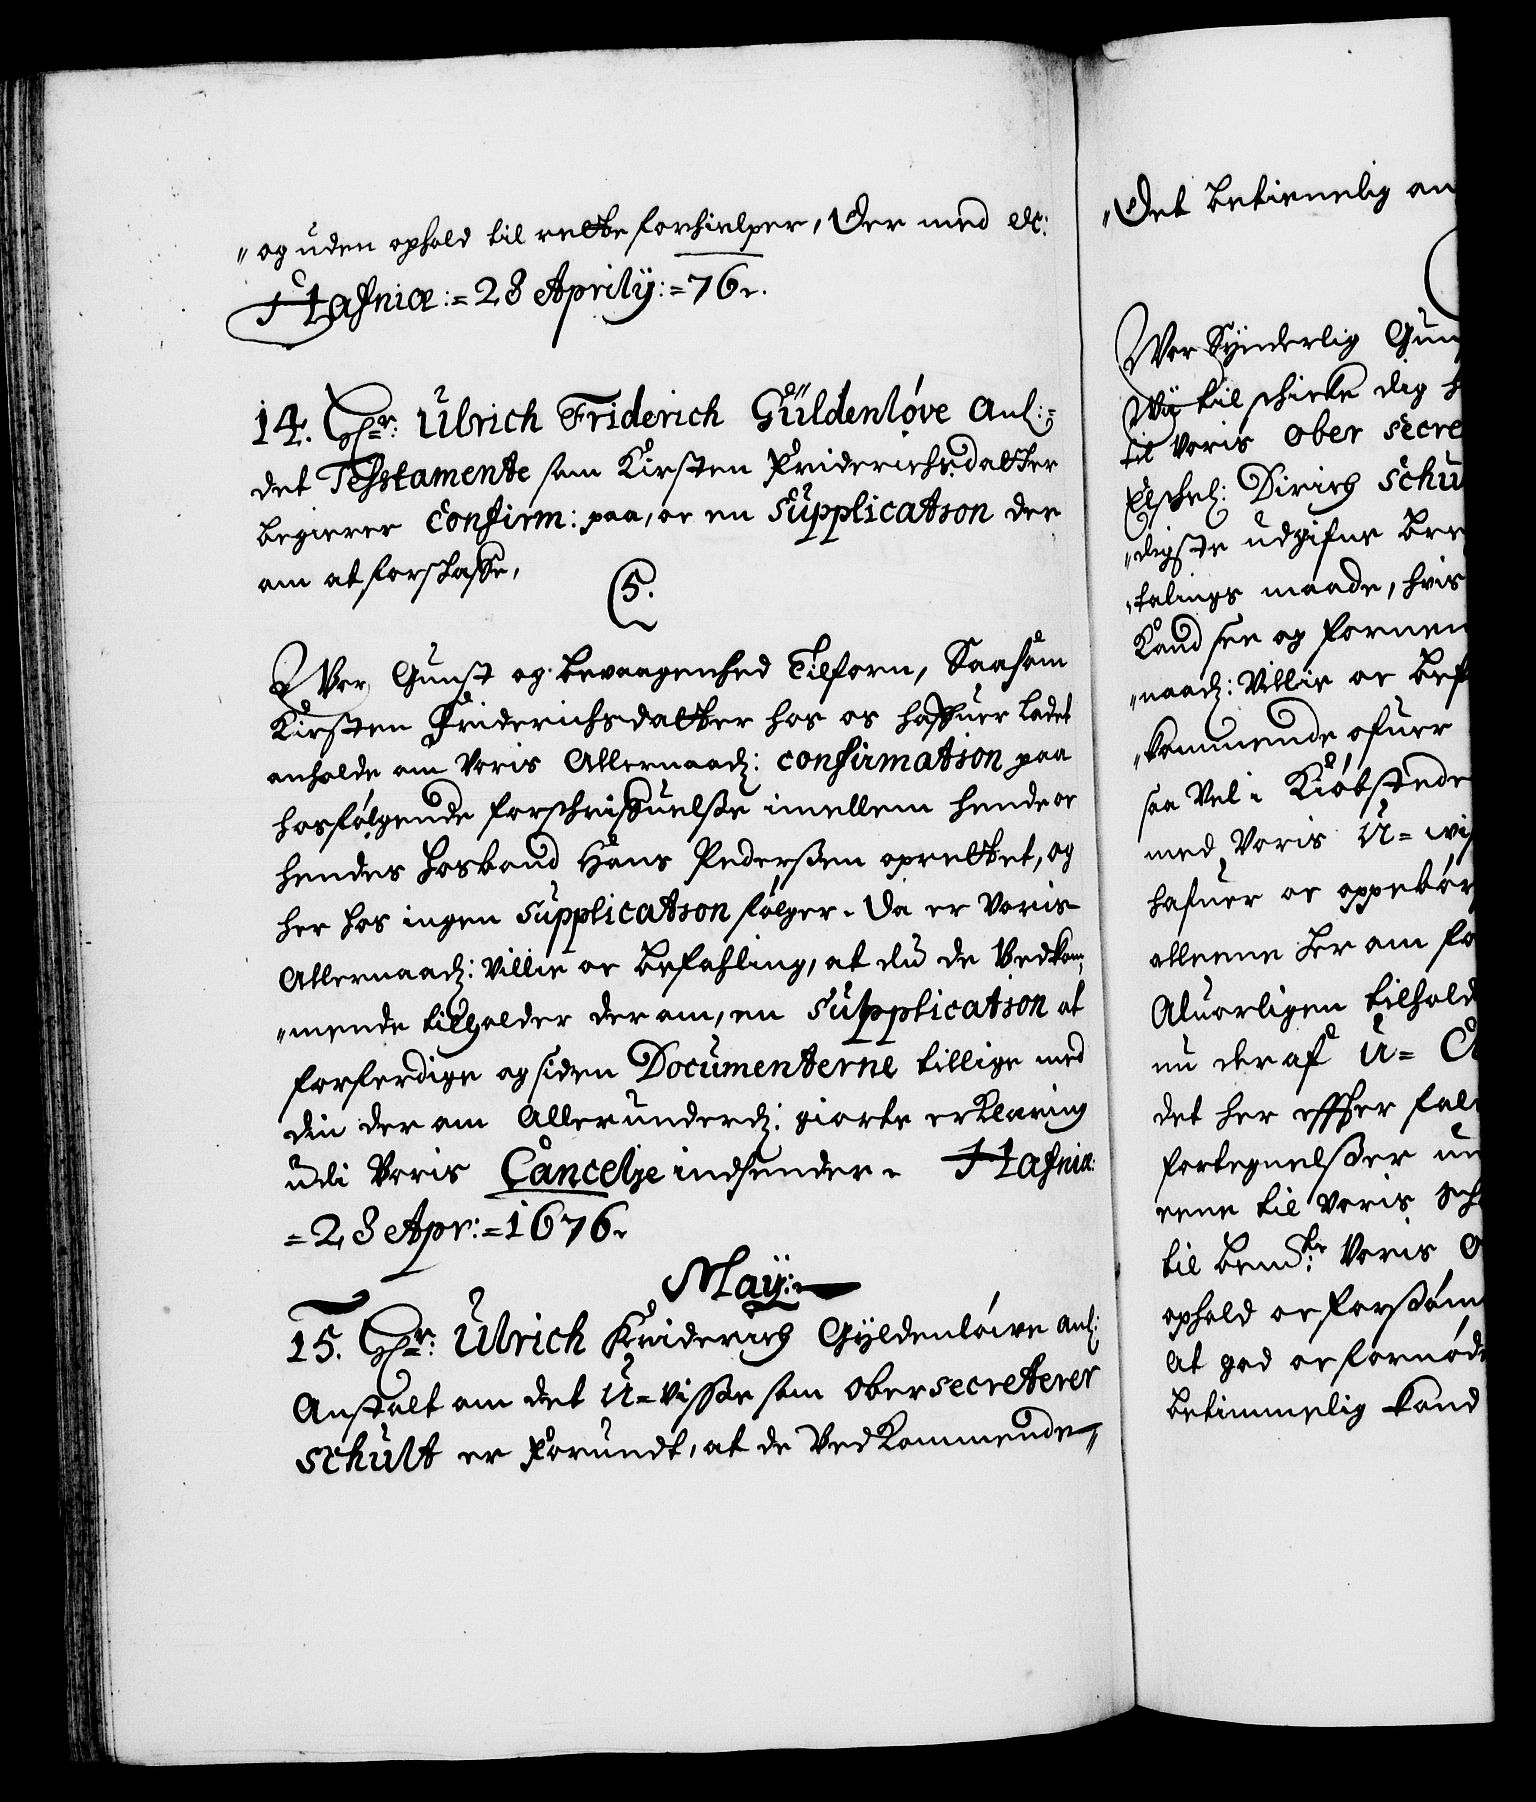 „og uden ophold til rette forhielper, Der med etc:
Hafniæ:=28 Aprilÿ:=76.
14. Hr: Ulrich Friderich Güldenløve anl:=
det Testamente som Kirsten Friderichsdatter
begierer Confirm: paa, oc en Supplication der
om at forskaffe,
5.
Vor Gunst og bevaagenhed Tilforn, Saasom
Kirsten Friderichsdatter hos os haffuer ladet
anholde om Voris Allernaadz: confirmation paa
hosfølgende forschriffuelsse imellem hende oc
hendes hosbond Hans Pederssen oprettet, og
her hos ingen Supplication følger. Da er Voris
Allernaadz: Villie oc befahling, at du de Vedkom„
„mende tilholder der om, en Supplication at
forferdige og siden Documenterne tillige med
din der om Allerunderdz: giorte erklæring
udi Voris Cancelje indsender. Hafniæ:
=28 Apr:=1676.
Maÿ:
15. Hr: Ulrich Friderich Gÿldenløive anl:
Anstalt om det U=visse som Obersecreterer
Schult er Forundt, at de Vedkommende„
„Det betienelig an
Vor Sÿnderlig Gun
Wÿ tilschicke dig h
til Voris Ober Secre
Elschel: Dirich Schu
„digste udgifne bre
„talings maade, hvis
Kand see og fornem
„naadz: Villie oc bef
„kommende, ofuer
saa Vel i Kiøbstede
med Voris U=wis
hafuer oc oppebør
alleene der om fo
Aluorligen tilhold
nu der af U= 
det her effter fal
fortegnelsser un
rene til Voris Sch
til bemte: Voris O
ophold oc forsøm
At god oc fornød
betimmelig kand